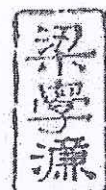 梁學濂